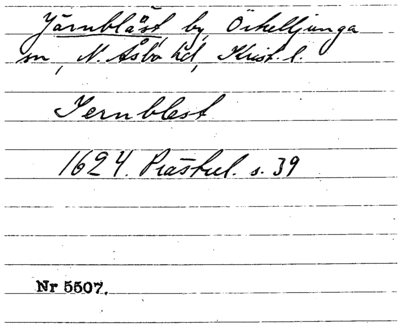 Järnbläst, by, Örkelljunga
sn, N. Åsbo hd, Krist. l.
Jernblest
1624. Prästrel. s. 39
Nr 5507.